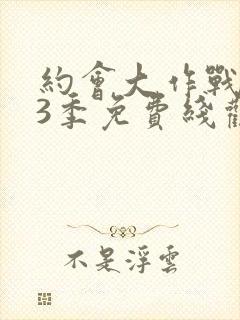 約會大作戰
3季免費綫
不是浮雲